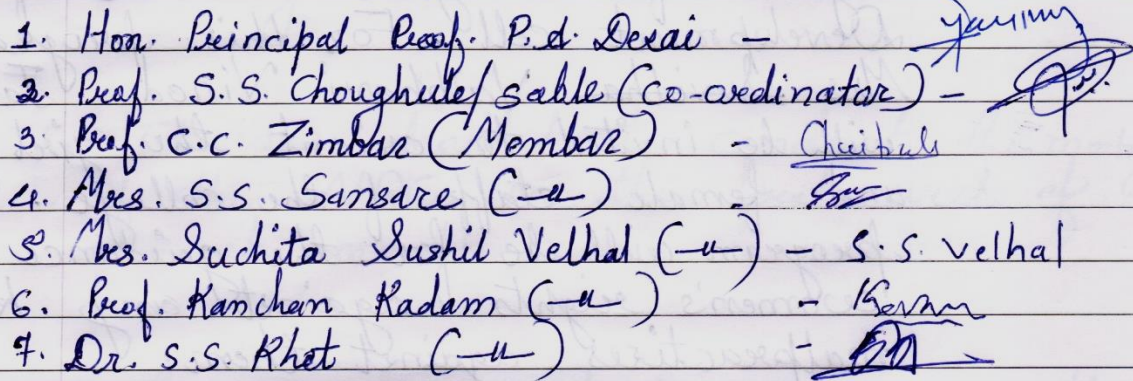 1. Hon. Principal Prof. P. d. Desai -
2. Prof. S. S. Choughule/ Sable (Co-ordinator) -
3. Prof. C. C. Zimbar (Membar) -
4. Mrs. S. S. Sansare (-u-) -
5. Mrs. Suchita Sushil Velhal (-u-) - S. S. Velhal
6. Prof. Kanchan Kadam (-u-) -
7. Dr. S. S. Khot (-u-) -